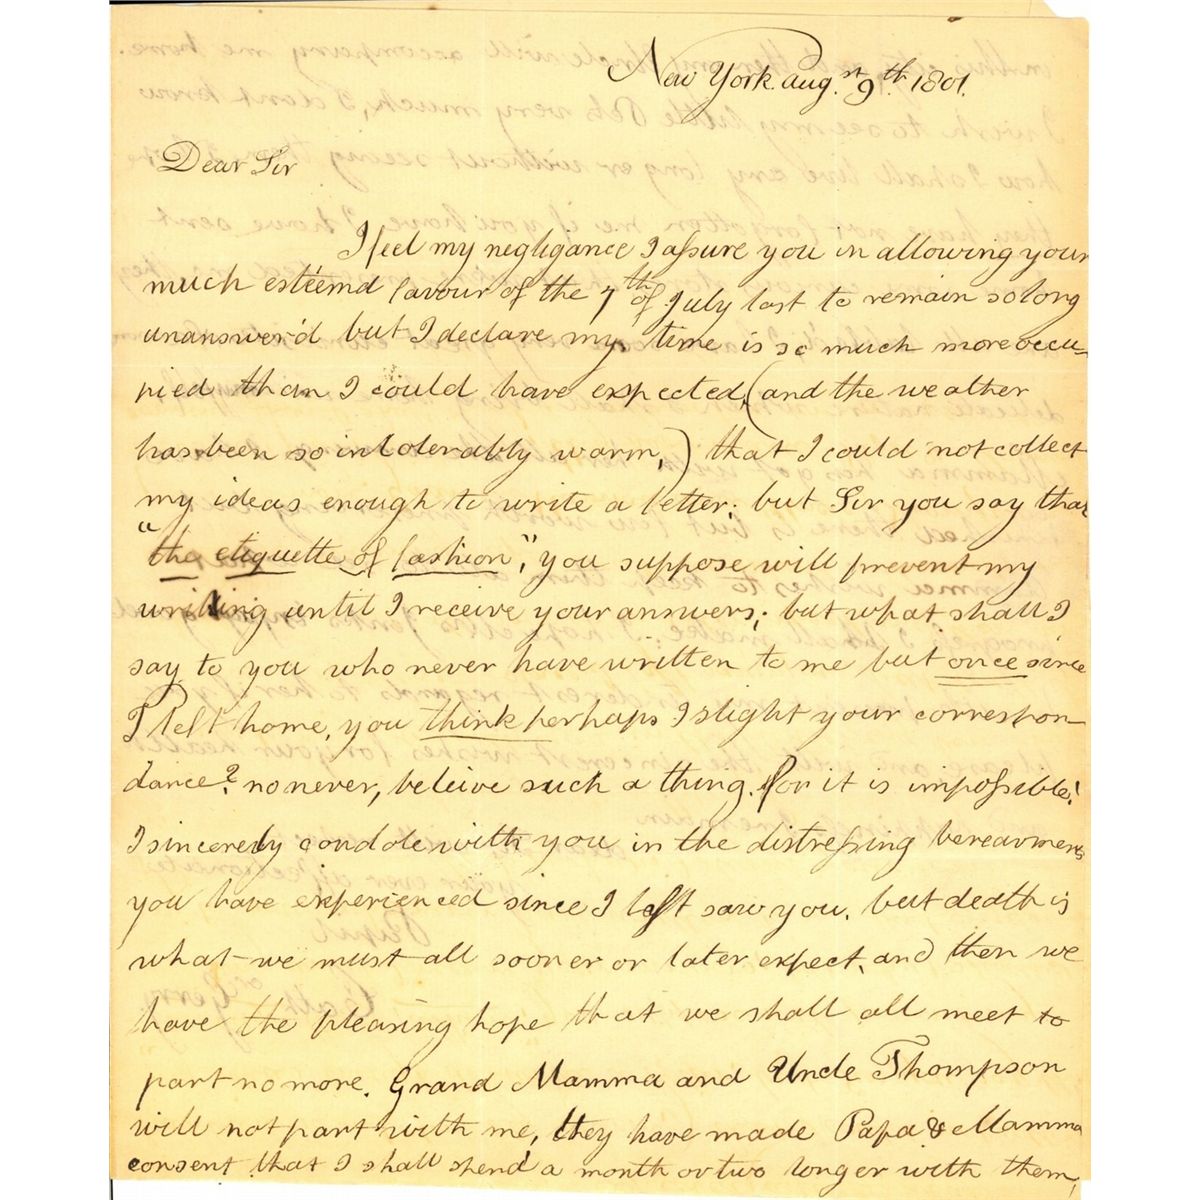 New York. Aug.st 9th. 1801.
Dear Sir
I feel my negligance I assure you in allowing your
much esteemd favour of the 7th of July last to remain so long
unanswer'd but I declare my time is so much more occu-
pied than I could have expected, (and the weather
has been so intolerably warm,) that I could not collect
my ideas enough to write a letter; but Sir you say that
"the etiquette of fashion", you suppose will prevent my
writing until I receive your answers; but what shall I
say to you who never have written to me but once since
I left home, you think perhaps I slight your correspon-
dance? no never, beleive such a thing. for it is impossible!
I sincerely condole with you in the distressing bereavment
you have experienced since I last saw you, but death is
what we must all sooner or later expect, and then we
have the pleasing hope that we shall all meet to
part no more. Grand Mamma and Uncle Thompson
will not part with me, they have made Papa & Mamma
consent that I shall spend a month or two longer with them,